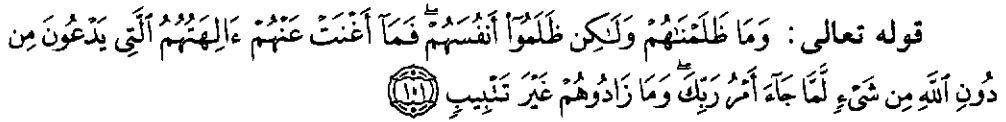 قوله تعالى : وَمَا ظَلَمْنَٰهُمْ وَلَٰكِن ظَلَمُوٓا۟ أَنفُسَهُمْ ۖ فَمَآ أَغْنَتْ عَنْهُمْ ءَالِهَتُهُمُ ٱلَّتِى يَدْعُونَ مِن
دُونِ ٱللَّهِ مِن شَىْءٍ لَّمَّا جَآءَ أَمْرُ رَبِّكَ ۖ وَمَا زَادُوهُمْ غَيْرَ تَتْبِيبٍ ﴿١٠١﴾